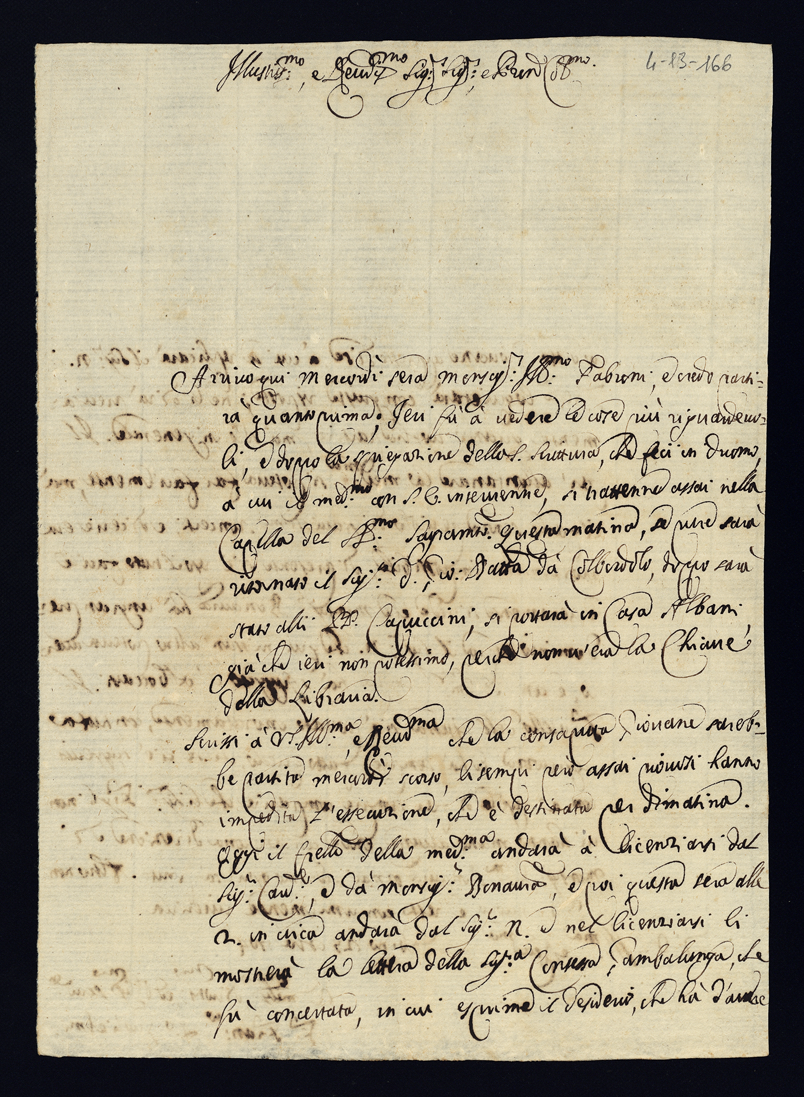 4-13-166
Illustris.mo, e Reud.mo Sig.r Sig.r, e Pron Col.mo
Arrivò qui Mercordì sera Monsig.r Ill.mo Fabroni, e credo parti-
rà quanto prima; Ieri fù à vedere le cose più riguardevo-
li, e doppo la spiegazione della S. Scrittura, che feci in Duomo,
à cui il med.mo con S. E. intervenne, si trattenne assai nella
Capella del SS.mo Sagramto. Questa matina, se pure sarà
ritornato il Sig.r D. Gio: Batta dà Colbordolo, doppo sarà
stato alli PP. Capuccini, si portarà in Casa Albani,
già che ieri non potessimo, perche non vi era la Chiave
della Libraria.
Scrissi à V.S. Ill.ma, e Reud.ma che la consaputa Giovane sareb-
be partita mercordì scorso, li tempi però assai piovosi hanno
impedita l'essecuzione, che è destinata per dimatina.
Oggi il frello della med.ma andarà à licenziarsi dal
Sig.r Card.le, e dà Monsig.r Bonaura, e poi questa sera alle
2. in circa andarà dal Sig.r N. e nel licenziarsi li
mostrerà la lettera della Sig.ra Contessa Gambalunga, che
fù concertata, in cui esprime il desiderio, che hà d'avere